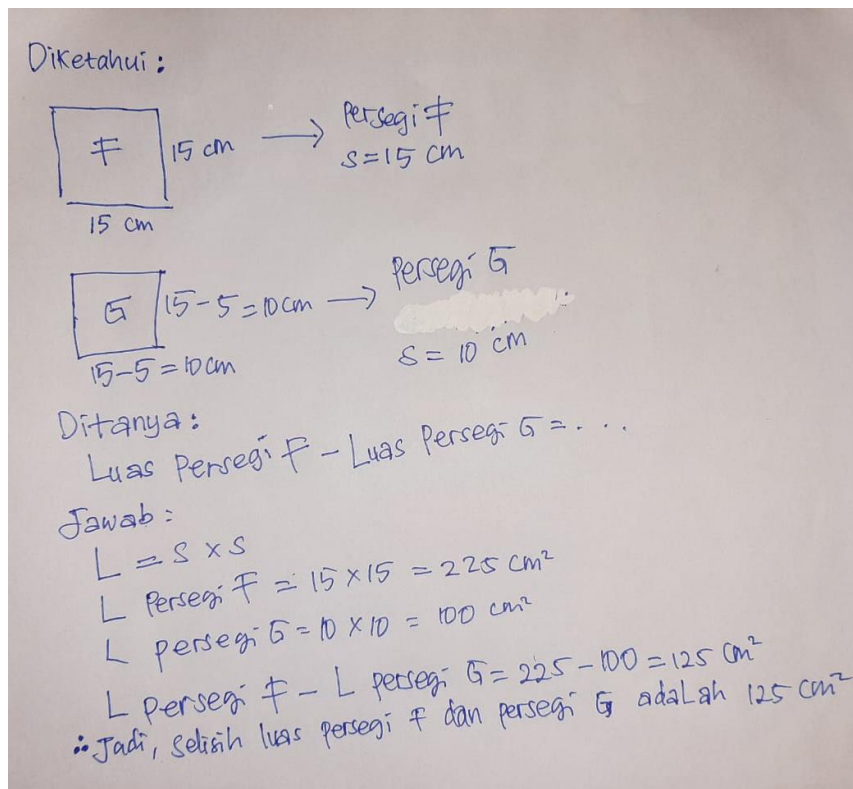 Diketahui :
F
15 cm
15 cm
→ Persegi F
s = 15 cm
G
15 - 5 = 10 cm
15 - 5 = 10 cm
→ Persegi G
s = 10 cm
Ditanya :
Luas Persegi F - Luas Persegi G = . . .
Jawab :
L = s x s
L Persegi F = 15 x 15 = 225 cm²
L persegi G = 10 x 10 = 100 cm²
L persegi F - L persegi G = 225 - 100 = 125 cm²
∴ Jadi, selisih luas persegi F dan persegi G adalah 125 cm²